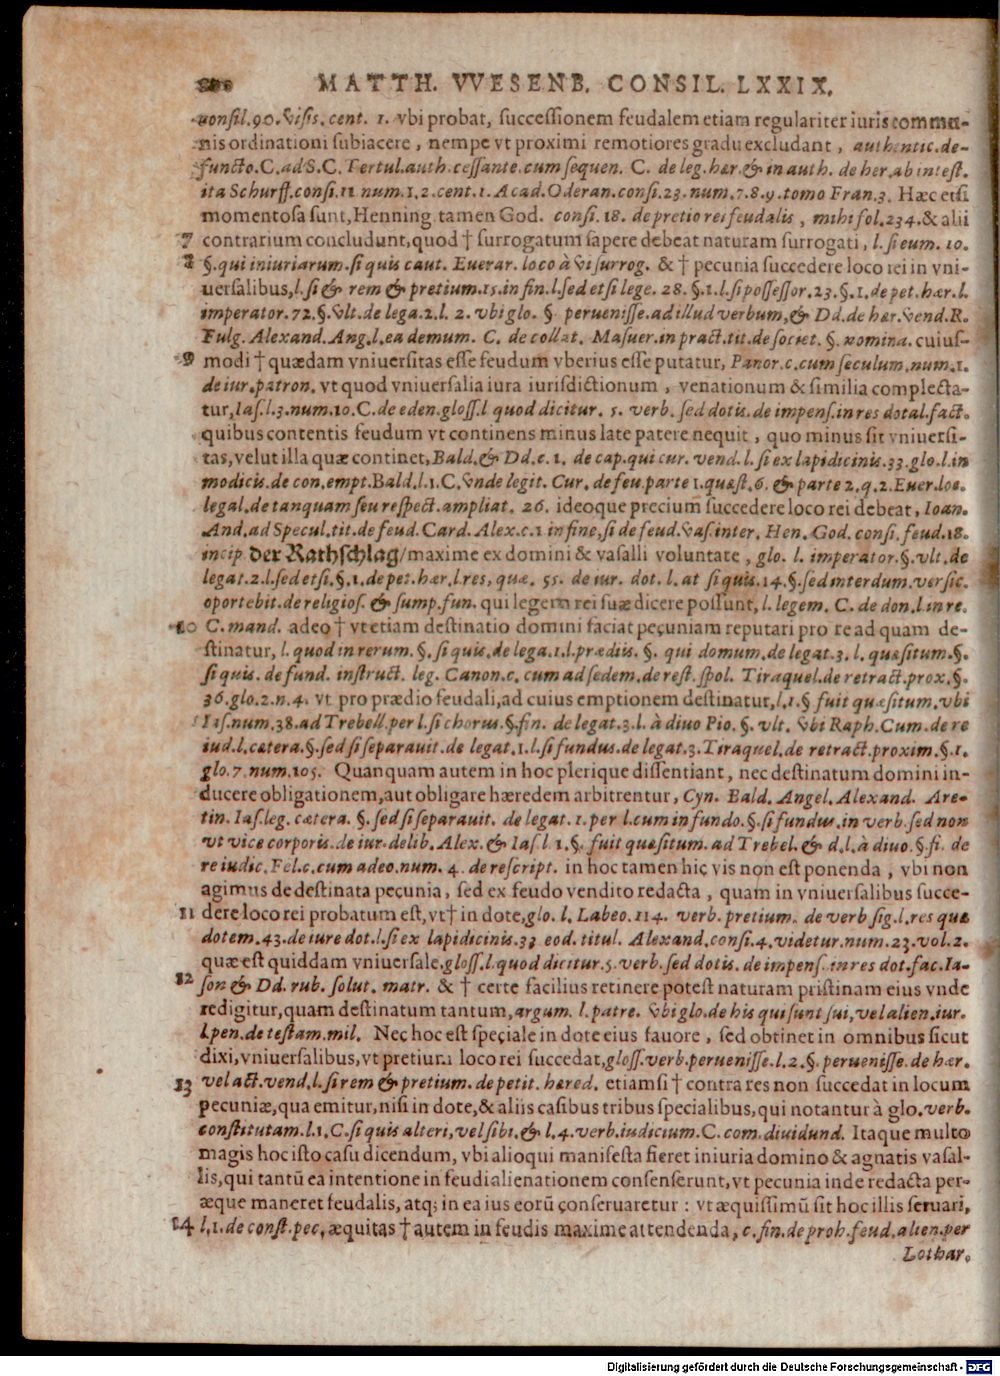 MATTH. VVESENB. CONSIL. LXXIX.
consil.90. visis. cent. 1. vbi probat, successionem feudalem etiam regulariter iuris commu-
nis ordinationi subiacere, nempe vt proximi remotiores gradu excludant, authentic.de-
functo.C.ad S.C.Tertul.auth.cessante.cum sequen. C. de leg.hær.& in auth. de her.ab intest.
ita Schurff.consi.11 num.1.2.cent.1. Acad.Oderan.consi.23.num.7.8.9.tomo Fran.3. Hæc etsi
momentosa sunt, Henning. tamen God. consi. 18. de pretio rei feudalis, mihi fol.234.& alii
7 contrarium concludunt, quod † surrogatum sapere debeat naturam surrogati, l.si eum. 10.
8 §.qui iniuriarum.si quis caut. Euerar. loco à vi surrog. & † pecunia succedere loco rei in vni-
uersalibus, l.si & rem & pretium.15.in fin.l.sed etsi lege. 28. §.1.l.si possessor.23.§.1.de pet.hær.l.
imperator.72.§.vlt.de lega.2.l. 2. vbi glo. §. peruenisse.ad illud verbum, & Dd.de hær.vend.R.
Fulg. Alexand. Ang.l.ea demum. C. de collat. Masuer.in pract.tit.de societ. §. nomina. cuius-
9 modi † quædam vniuersitas esse feudum vberius esse putatur, Panor.c.cum seculum.num.1.
de iur.patron. vt quod vniuersalia iura iurisdictionum, venationum & similia complecta-
tur, Ias.l.3.num.10.C.de eden.gloss.l quod dicitur. 5. verb. sed dotis.de impens.in res dotal.fact.
quibus contentis feudum vt continens minus late patere nequit, quo minus sit vniuersi-
tas, velut illa quæ continet, Bald.& Dd.c.1. de cap.qui cur. vend.l.si ex lapidicinis.33.glo.l.in
modicis.de con.empt.Bald.l.1.C.vnde legit. Cur.de feu.parte 1.quæst.6. & parte 2.q.2.Euer.loc.
legal.de tanquam seu respect.ampliat. 26. ideoque precium succedere loco rei debeat, Ioan.
And.ad Specul.tit.de feud.Card. Alex.c.1 in fine, si de feud.vas.inter. Hen. God. consi. feud.18.
incip. der Rathschlag/ maxime ex domini & vasalli voluntate, glo. l. imperator.§.vlt.de
legat.2.l.sed etsi.§.1.de pet.hær.l.res, quæ. 55. de iur. dot. l. at si quis.14.§.sed interdum.versic.
oportebit.de religios. & sump.fun. qui legem rei suæ dicere possunt, l. legem. C. de don.l.in re.
10 C. mand. adeo † vt etiam destinatio domini faciat pecuniam reputari pro re ad quam de-
stinatur, l. quod in rerum. §. si quis.de lega.1.l.prædiis. §. qui domum.de legat.3. l. quæsitum.§.
si quis.de fund. instruct. leg. Canon.c.cum ad sedem.de rest. spol. Tiraquel.de retract.prox.§.
36.glo.2.n.4. vt pro prædio feudali, ad cuius emptionem destinatur, l.1.§ fuit quæsitum.vbi
Ias.num.38.ad Trebell.per l.si chorus.§.fin. de legat.3.l. à diuo Pio. §. vlt. vbi Raph.Cum.de re
iud.l.cætera.§.sed si separauit.de legat.1.l.si fundus.de legat.3.Tiraquel.de retract.proxim.§.1.
glo.7.num.105. Quanquam autem in hoc plerique dissentiant, nec destinatum domini in-
ducere obligationem, aut obligare hæredem arbitrentur, Cyn. Bald. Angel. Alexand. Are-
tin. Ias.leg. cætera. §. sed si separauit. de legat. 1. per l.cum in fundo.§.si fundus.in verb.sed non
vt vice corporis.de iur.delib. Alex. & Ias.l 1.§. fuit quæsitum. ad Trebel. & d.l.à diuo.§.fi. de
re iudic. Fel.c.cum adeo.num. 4. de rescript. in hoc tamen hic vis non est ponenda, vbi non
agimus de destinata pecunia, sed ex feudo vendito redacta, quam in vniuersalibus succe-
11 dere loco rei probatum est, vt † in dote, glo. l. Labeo.114. verb. pretium. de verb sig.l.res quæ
dotem.43.de iure dot.l.si ex lapidicinis.33 eod. titul. Alexand.consi.4.videtur.num.23.vol.2.
quæ est quiddam vniuersale, gloss.l.quod dicitur.5.verb.sed dotis.de impens.in res dot.fac.Ia-
12 son & Dd. rub. solut. matr. & † certe facilius retinere potest naturam pristinam eius vnde
redigitur, quam destinatum tantum, argum. l.patre. vbi glo.de his qui sunt sui, vel alien.iur.
l.pen.de testam.mil. Nec hoc est speciale in dote eius fauore, sed obtinet in omnibus sicut
dixi, vniuersalibus, vt pretium loco rei succedat, gloss.verb.peruenisse.l.2.§. peruenisse.de hær.
13 vel act.vend.l.si rem & pretium. de petit. hæred. etiamsi † contra res non succedat in locum
pecuniæ, qua emitur, nisi in dote, & aliis casibus tribus specialibus, qui notantur à glo.verb.
constitutam.l.1.C.si quis alteri, vel sibi. & l.4.verb.iudicium.C.com.diuidund. Itaque multo
magis hoc isto casu dicendum, vbi alioqui manifesta fieret iniuria domino & agnatis vasal-
lis, qui tantũ ea intentione in feudi alienationem consenserunt, vt pecunia inde redacta per-
æque maneret feudalis, atq; in ea ius eorũ conseruaretur : vt æquissimũ sit hoc illis seruari,
14 l.1.de const.pec, æquitas † autem in feudis maxime attendenda, c.fin.de proh.feud.alien.per
Lothar.
Digitalisierung gefördert durch die Deutsche Forschungsgemeinschaft - DFG